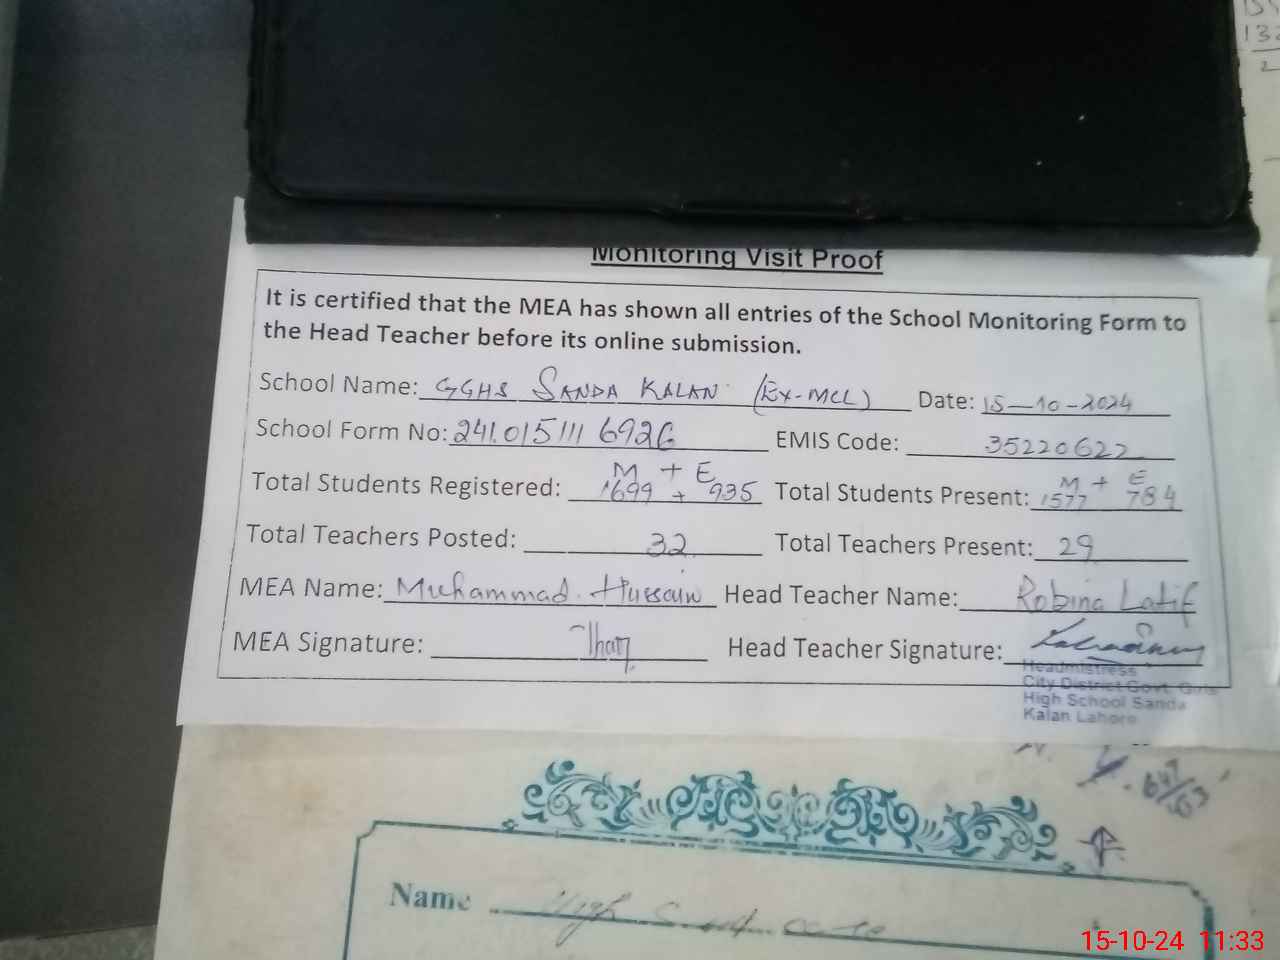 Monitoring Visit Proof
It is certified that the MEA has shown all entries of the School Monitoring Form to
the Head Teacher before its online submission.
School Name: GGHS SANDA KALAN (EX-MCL) Date: 15-10-2024
School Form No: 241.015111 6926 EMIS Code: 35220622
M + E M + E
Total Students Registered: 1699 + 935 Total Students Present: 1577 784
Total Teachers Posted: 32 Total Teachers Present: 29
MEA Name: Muhammad Hussain Head Teacher Name: Robina Latif
MEA Signature: Head Teacher Signature:
Headmistress
City District Govt. Girls
High School Sanda
Kalan Lahore
Name High
15-10-24 11:33